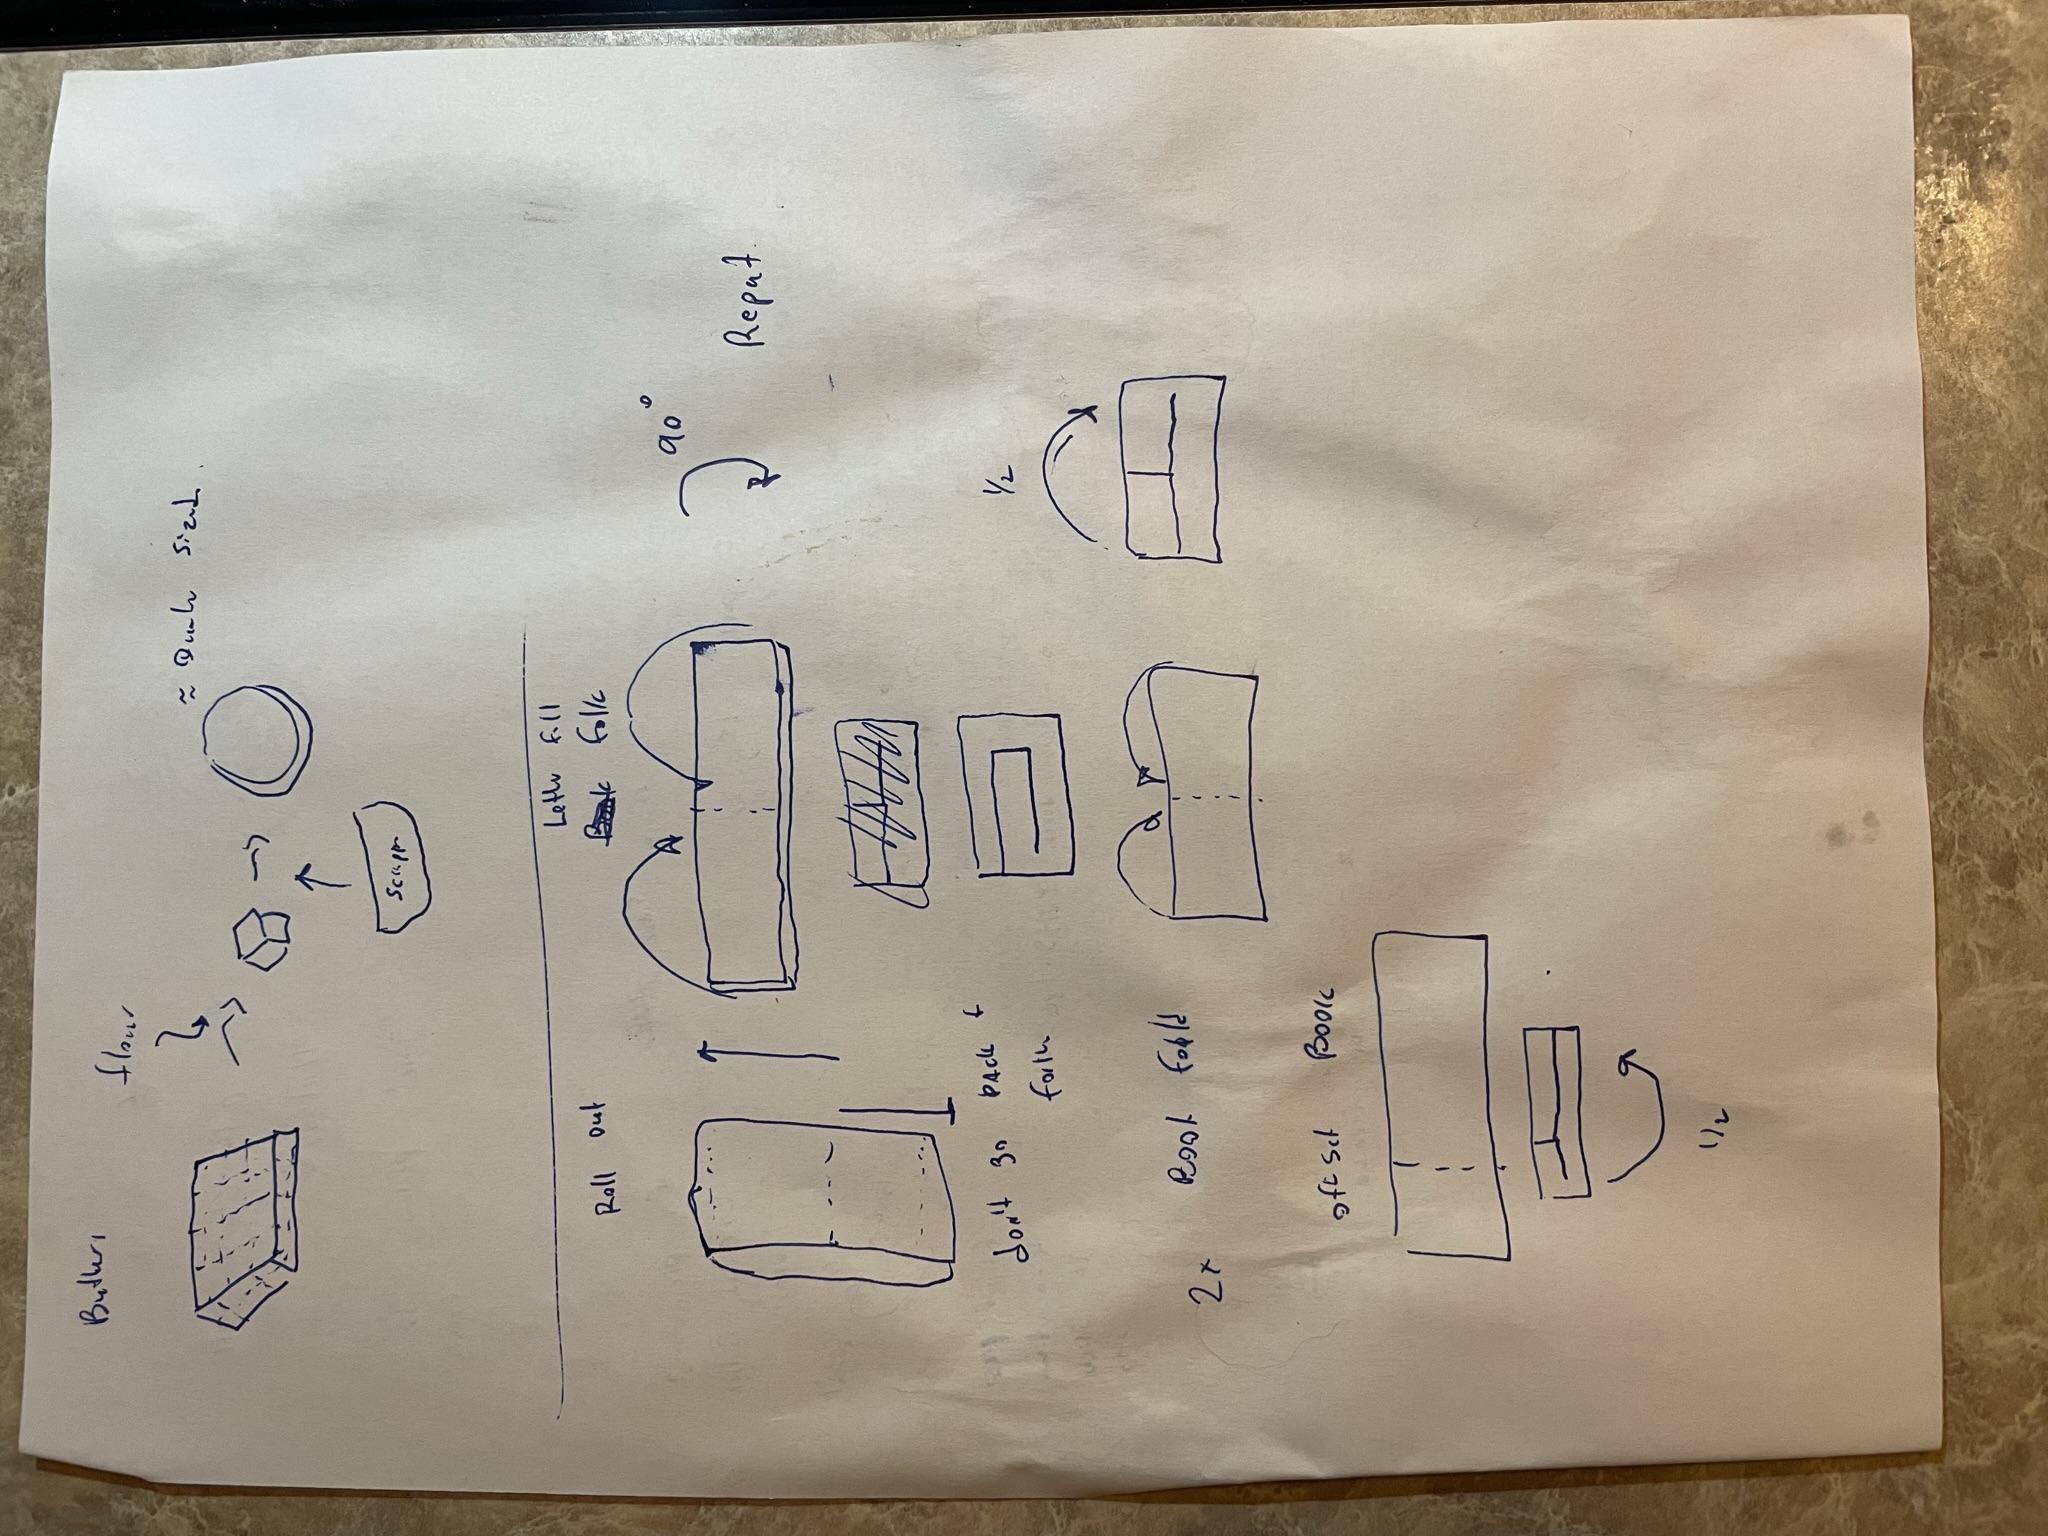 Butter
flour
≈ sized
Scrapper
Roll out
Letter fill
Book Folk
90°
Repat.
don't go back &
forth
1/2
2x Book Fold
offset Book
1/2